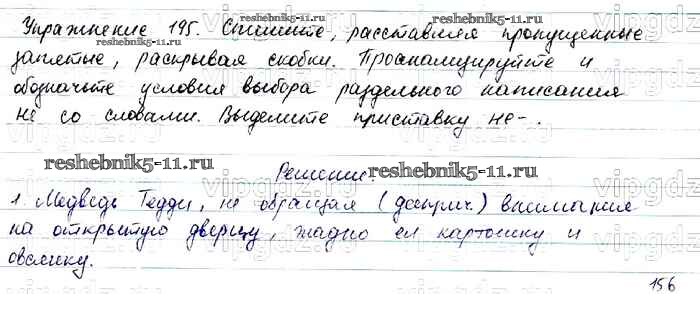 Упражнение 195. Спишите, расставляя пропущенные
reshebnik5-11.ru
reshebnik5-11.ru
запятые, раскрывая скобки. Проанализируйте и
обозначьте условия выбора раздельного написания
не со словами. Выделите приставку не-.
reshebnik5-11.ru
reshebnik5-11.ru
Решение.
1. Медведь Тедди, не обращая (дееприч.) внимания
на открытую дверцу, жадно ел картошку и
овсянку.
156